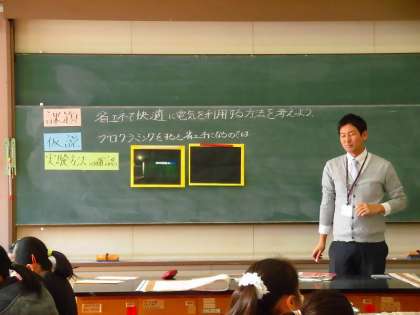 課題 省エネで快適に電気を利用する方法を考えよう。
仮説 プログラミングを使えば省エネになるのでは
実験方法の確認